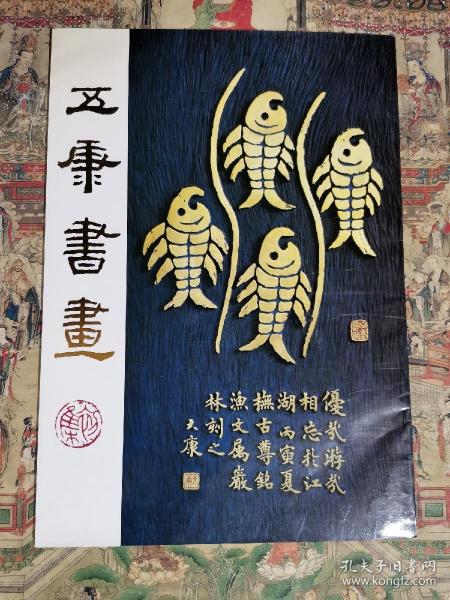 五康書畫
優哉游哉
相忘於江
湖丙寅夏
橅古尊銘
漁文属巖
林刻之
大康
孔夫子旧书网
www.kongfz.com